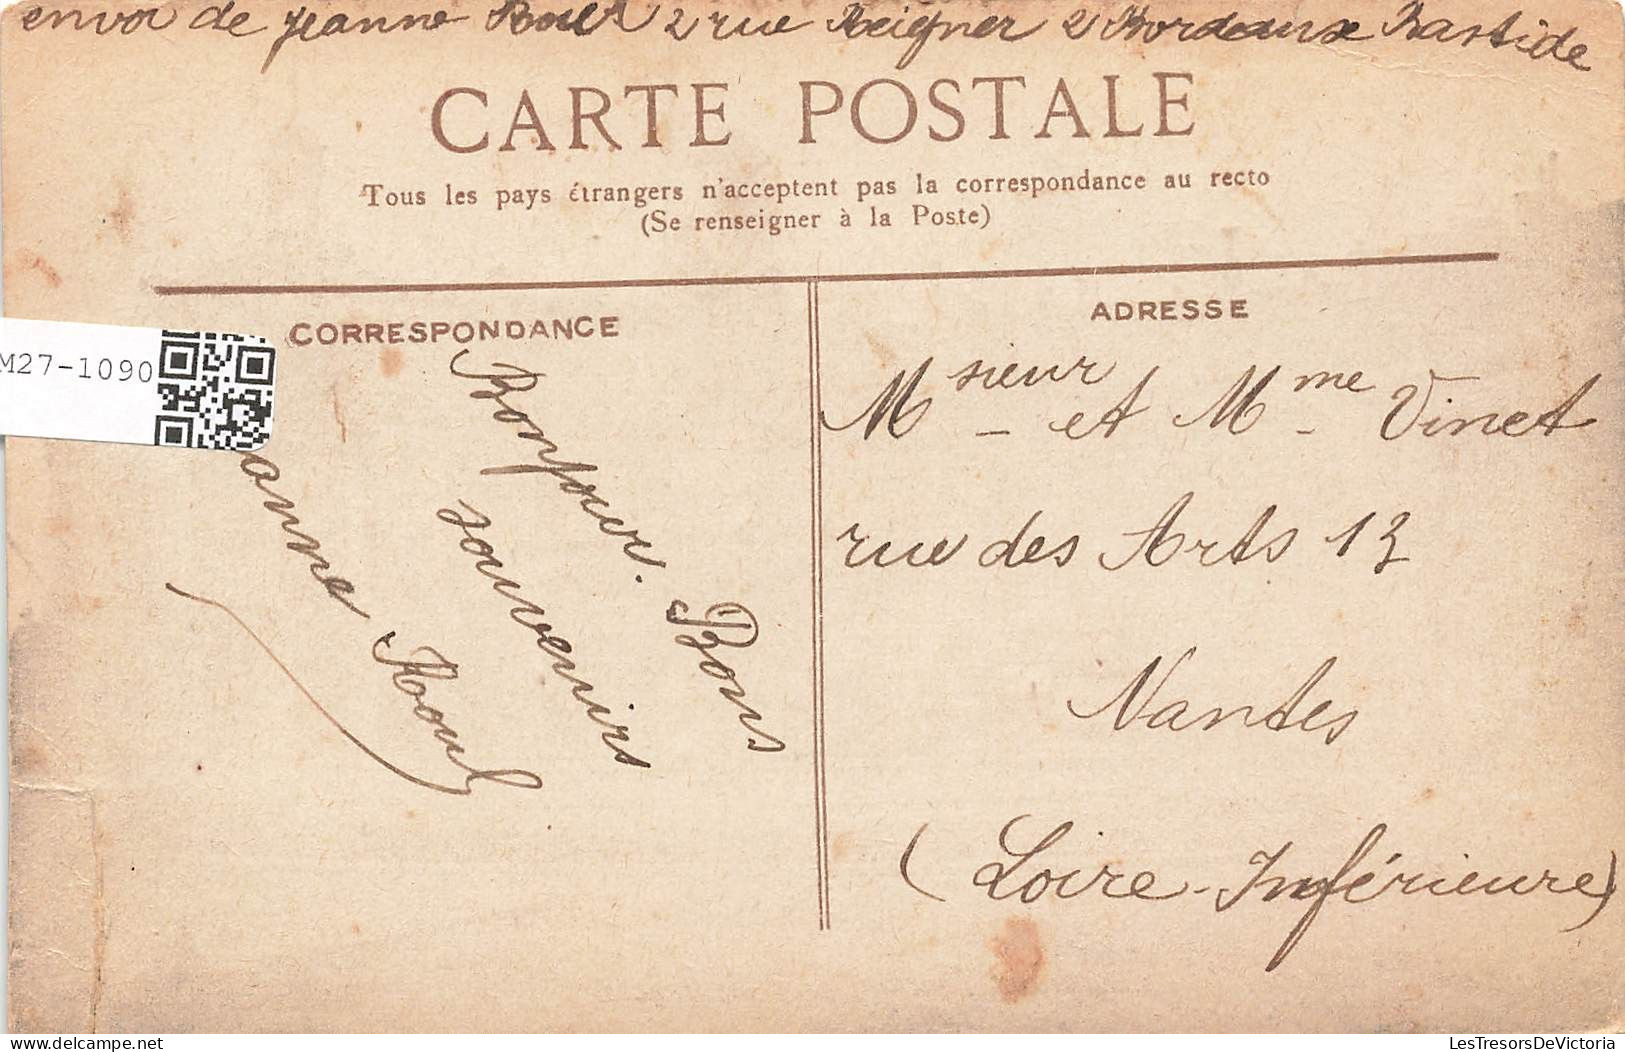 envoi de Jeanne 2 rue Reigner 2 Bordeaux Bastide
CARTE POSTALE
Tous les pays étrangers n'acceptent pas la correspondance au recto
(Se renseigner à la Poste)
CORRESPONDANCE
M27-1090
Bonjour. Bons
souvenirs
anne Roul
ADRESSE
Msieur et Mme Vinet
rue des Arts 13
Nantes
(Loire-Inférieure)
LesTresorsDeVictoria